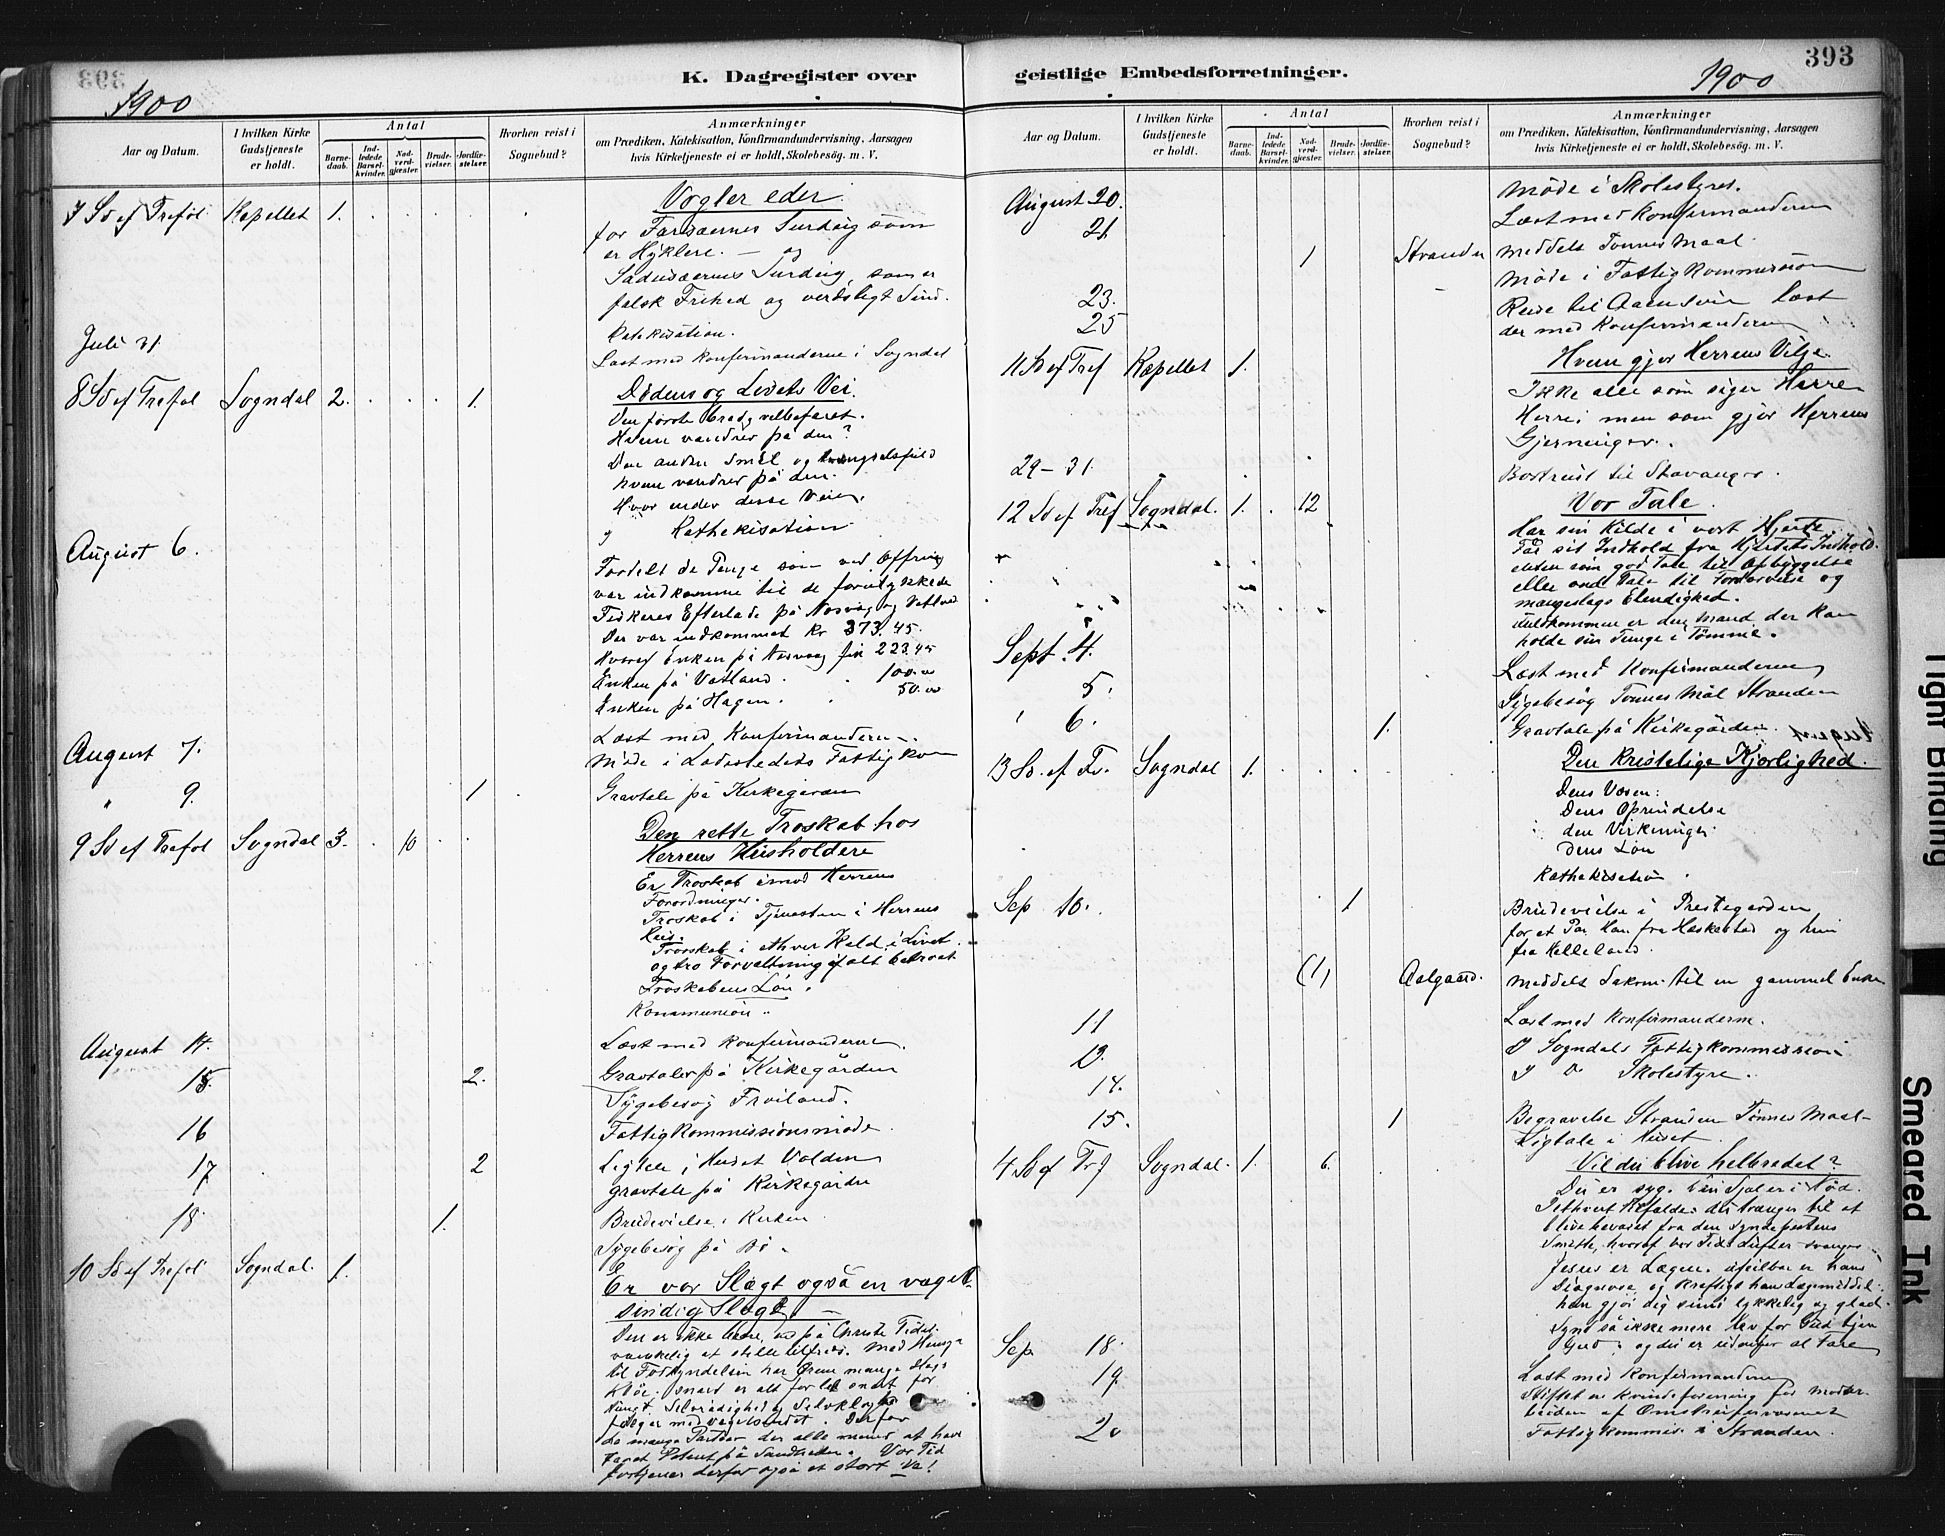 393
K. Dagregister over geistlige Embedsforretninger.
1900
1900
Aar og Datum.
I hvilken Kirke Gudstjeneste er holdt.
Antal
Barnedaab.
Indledede Barselkvinder.
Nadverdgjester.
Brudevielser.
Jordfæstelser.
Hvorhen reist i Sognebud?
Anmærkninger
om Prædiken, Katekisation, Konfirmandundervisning, Aarsagen
hvis Kirketjeneste ei er holdt, Skolebesög. m. V.
7 Sd ef Trefol Kapellet 1. Vogler eder
for Farisæernes Surdeig som
er Hyklere. — og
Sadusæernes Surdeig, som er
falsk Frihed og verdsligt Sind.
Katekisation.
Juli 31 Læst med Konfirmanderne i Sogndal
8 Sd ef Trefol Sogndal 2. 1. Dödens og Livets Vei.
Den förste bred, velbefaret.
Hvem vandrer på den?
Den anden Smal og trængselsfuld
hvem vandrer på den.
Hvor ender disse Veie.
Kathekisation
August 6. Fordelt de Penge som ved Offring
var indkomne til de forulykkede
Fiskeres Efterladte på Nesvåg og Vatland
Der var indkommet kr 373.45.
Hvoraf Enken på Nesvaag fik 223.45
Enken på Vatland. 100.00
Enken på Hagen. 50.00
August 7. Læst med Konfirmanderne.
Möde i Ladestedets Fattigkom
" 9. 1 Gravtale på Kirkegården
9 Sd ef Trefol Sogndal 3. 10 Den rette Troskab hos
Herrens Husholdere
Er Troskab imod Herrens
Forordninger.
Troskab i Tjenesten i Herrens
Hus.
Troskab i ethvert Kald i Livet
og tro Forvaltning af alt betroet
Troskabens Lön.
Kommunion
August 14. Læst med Konfirmanderne.
15 2. Gravtaler på Kirkegården
Sygebesög Fröiland.
16 Fattigkommissionsmöde.
17 2 Ligtale i Huset Volden
gravtale på Kirkegården
18 1. Brudevielse i Kirken
Sygebesög på Bö
10 Sd ef Trefol Sogndal. 1. Er vor Slægt også en vægel-
sindig Slægt. —
Den er ikke bedre, end på Christi Tider
vanskelig at stille tilfreds. Med Hensyn
til Forkyndelsen har Ören mange Slags
Klöe. snart er alt for let snart for
tungt. Selvrådighed og Selvklogskab
fölger med vægelsindet. Derfor
så mange Partier der alle mener at have
taget Patent på Sandheden. Vor Tid
fortjener derfor også et stort Ve!
August 20. Möde i Skolestyret.
21 Læst med Konfirmanderne
1 Stranden meddelt Tönnes Maal.
Möde i Fattigkommission
23.
25 Reise til Aaensire Læst
der med Konfirmanderne
11 Sd ef Tref Kapellet 1. Hvem gjør Herrens Vilje.
Ikke alle som siger Herre
Herre; men som gjör Herrens
Gjerninger.
29–31. Bortreist til Stavanger.
12 Sd ef Tref Sogndal. 1. 12 Vor Tale
Har sin Kilde i vort Hjerte
Får sit Indhold fra Hjertets Indhold.
enten som god Tale til Opbyggelse
eller ond Tale til Fordærvelse og
mangeslags Elendighed.
Fuldkommen er den Mand der kan
holde sin Tunge i Tömme.
Sept. 4. Læst med Konfirmanderne
5. Sygebesög Tönnes Mål Stranden
' 6. 1. Gravtale på Kirkegården.
13 Sd. ef Tr. Sogndal 1. Den kristelige Kjærlighed.
Dens Væsen:
Dens Oprindelse
den Virkninger
dens Lön
Kathekisation
Sep 10. 1 Brudevielse i Prestegården
for et Par Han fra Heskestad og hun
fra Helleland.
(1) Aalgaard. Meddelt Sakrm. til en gammel Enke
11 Læst med Konfirmanderne.
12. I Sogndals Fattigkommission
14. I D° Skolestyre.
15. 1 Begravelse Stranden Tönnes Maal
Ligtale i Huset
4 Sd ef Trf Sogndal. 1. 6. Vil du blive helbredet?
Du er syg. Din Sjæl er i Nöd.
I ethvert Tilfælde du trænger til at
blive bevaret fra den Syndepestens
Smitte, hvoraf vor Tids Lufter svanger
Jesus er Lægen. ufeilbar er hans
Diagnose, og kraftigt hans Lægemiddel.
han gjör dig sund lykkelig og glad.
Synd så ikke mere Lev for Gud tjen
Gud, og du er udenfor al Fare
Sep. 18. Læst med Konfirmanderne
19. Stiftet en kvindeforening for Modar-
beiden af Omstreifervæsenet
20 Fattigkommis. i Stranden.
Tight Binding
Smeared Ink